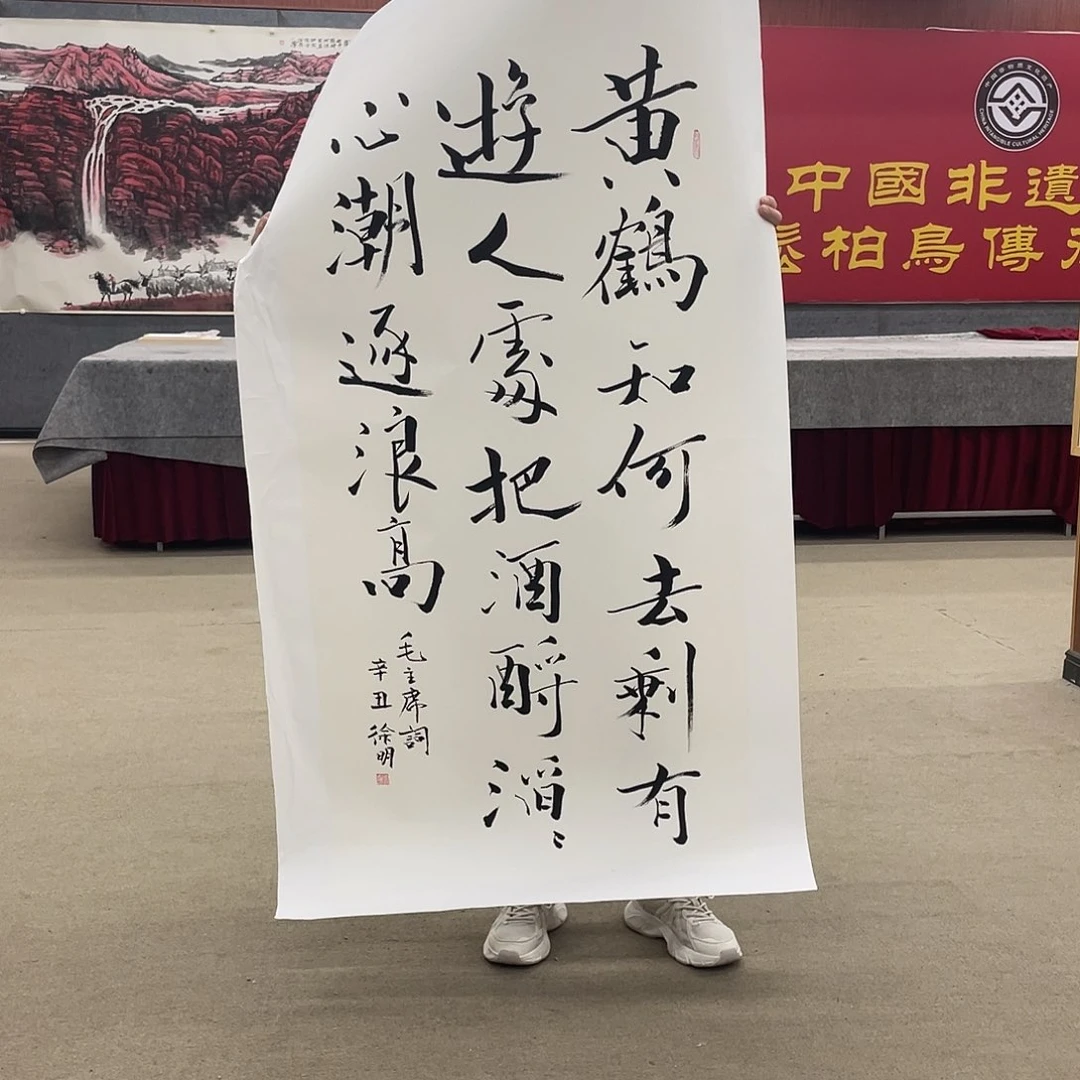 黄鶴知何去剩有
遊人處把酒酹滔〻
心潮逐浪高
毛主席詞
辛丑 徐明
中國非遺
柏鳥傳
CHINA INTANGIBLE CULTURAL HERITAGE